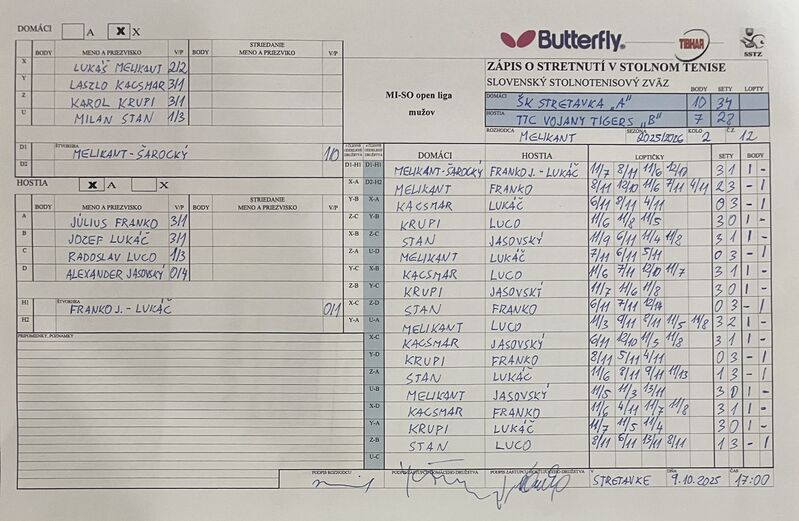 DOMÁCI A X X
BODY MENO A PRIEZVISKO V/P BODY STRIEDANIE MENO A PRIEZVISKO V/P
X LUKÁŠ MELIKANT 2/2
Y LASZLO KACSMAR 3/1
Z KAROL KRUPI 3/1
U MILAN STAN 1/3
D1 ŠTVORHRA MELIKANT-ŠAROCKÝ 1/0
D2
HOSTIA X A X
BODY MENO A PRIEZVISKO V/P BODY STRIEDANIE MENO A PRIEZVISKO V/P
A JÚLIUS FRANKO 3/1
B JOZEF LUKÁČ 3/1
C RADOSLAV LUCO 1/3
D ALEXANDER JASOVSKÝ 0/4
H1 ŠTVORHRA FRANKO J. - LUKÁČ 0/1
H2
PRIPOMIENKY, POZNÁMKY
Butterfly
TIBHAR
SSTZ
MI-SO open liga
mužov
ZÁPIS O STRETNUTÍ V STOLNOM TENISE
SLOVENSKÝ STOLNOTENISOVÝ ZVÄZ
BODY SETY LOPTY
DOMÁCI ŠK STRETAVKA „A" 10 34
HOSTIA TTC VOJANY TIGERS „B" 7 28
ROZHODCA MELIKANT SEZÓNA 2025/2026 KOLO 2 Č.Z. 12
DOMÁCI HOSTIA LOPTIČKY SETY BODY
D1-H1 D1-H1 MELIKANT-ŠAROCKÝ FRANKO J. - LUKÁČ 11/7 8/11 11/6 12/10 3 1 1 -
X-A D2-H2 MELIKANT FRANKO 8/11 12/10 11/6 7/11 4/11 2 3 - 1
Y-B X-A KACSMAR LUKÁČ 6/11 8/11 4/11 0 3 - 1
Z-C Y-B KRUPI LUCO 11/6 11/8 11/5 3 0 1 -
U-D Z-C STAN JASOVSKÝ 11/9 6/11 11/4 11/8 3 1 1 -
Z-A U-D MELIKANT LUKÁČ 7/11 6/11 5/11 0 3 - 1
Y-C X-B KACSMAR LUCO 11/6 7/11 12/10 11/7 3 1 1 -
Z-B Y-C KRUPI JASOVSKÝ 11/7 11/6 11/8 3 0 1 -
X-C Z-D STAN FRANKO 6/11 7/11 12/14 0 3 - 1
Y-A U-A MELIKANT LUCO 11/3 9/11 8/11 11/5 11/8 3 2 1 -
X-C KACSMAR JASOVSKÝ 6/11 12/10 11/5 11/8 3 1 1 -
Y-D KRUPI FRANKO 8/11 5/11 4/11 0 3 - 1
Z-A STAN LUKÁČ 11/6 8/11 9/11 11/13 1 3 - 1
U-B MELIKANT JASOVSKÝ 11/5 11/3 13/11 3 0 1 -
X-D KACSMAR FRANKO 11/6 4/11 11/7 11/8 3 1 1 -
Y-A KRUPI LUKÁČ 11/7 11/5 11/4 3 0 1 -
Z-B STAN LUCO 8/11 6/11 13/11 8/11 1 3 - 1
U-C
PODPIS ROZHODCU PODPIS ZÁSTUPCU DOMÁCEHO DRUŽSTVA PODPIS ZÁSTUPCU HOSŤUJÚCEHO DRUŽSTVA V STRETAVKE DŇA 9.10.2025 ČAS 17:00